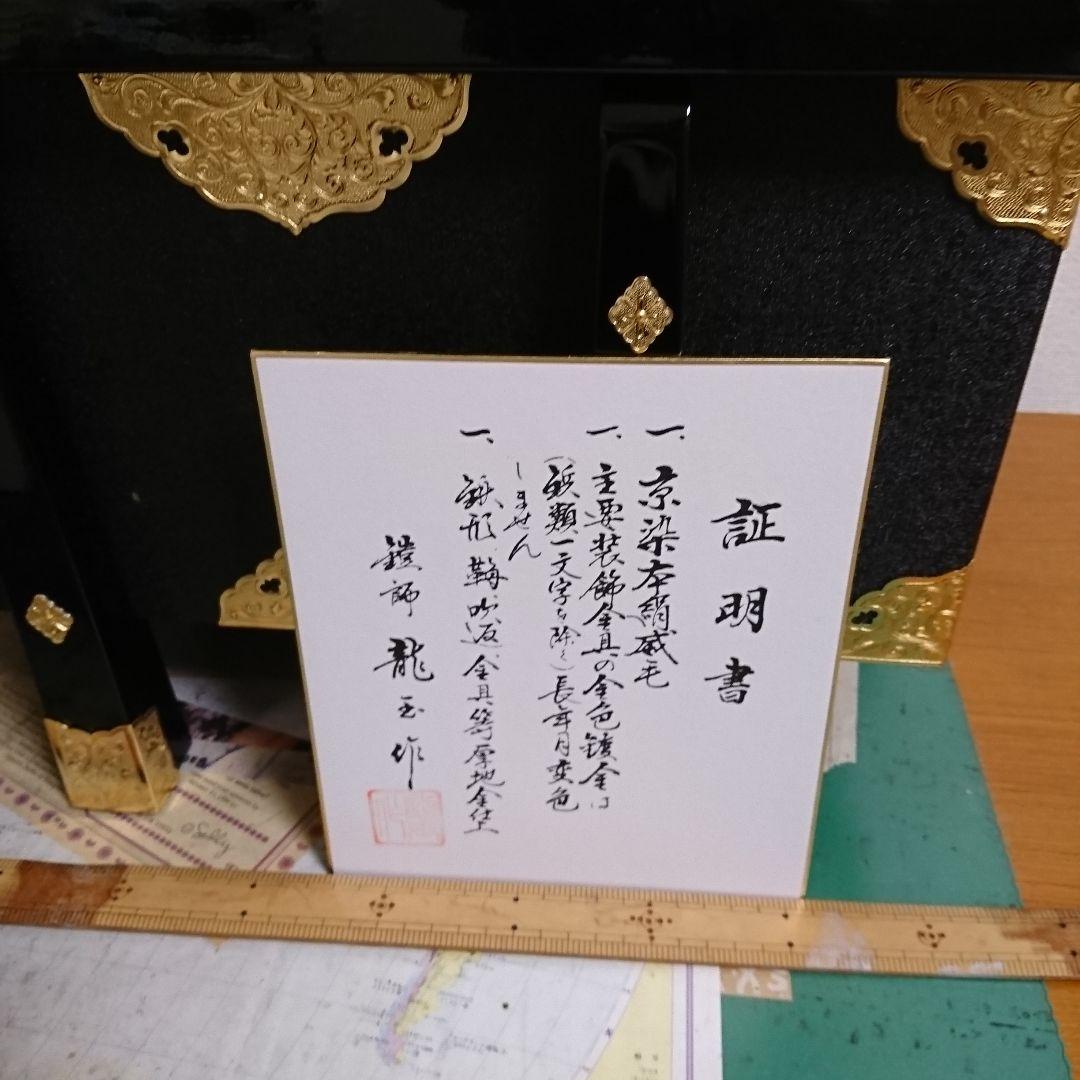 証明書
一、京染本絹威毛
一、主要装飾金具の金色鍍金は
(鋲類一文字を除く)長年月変色
しません
一、鍬形、鞠、吹返、金具等厚地金仕上
鎧師 龍玉作